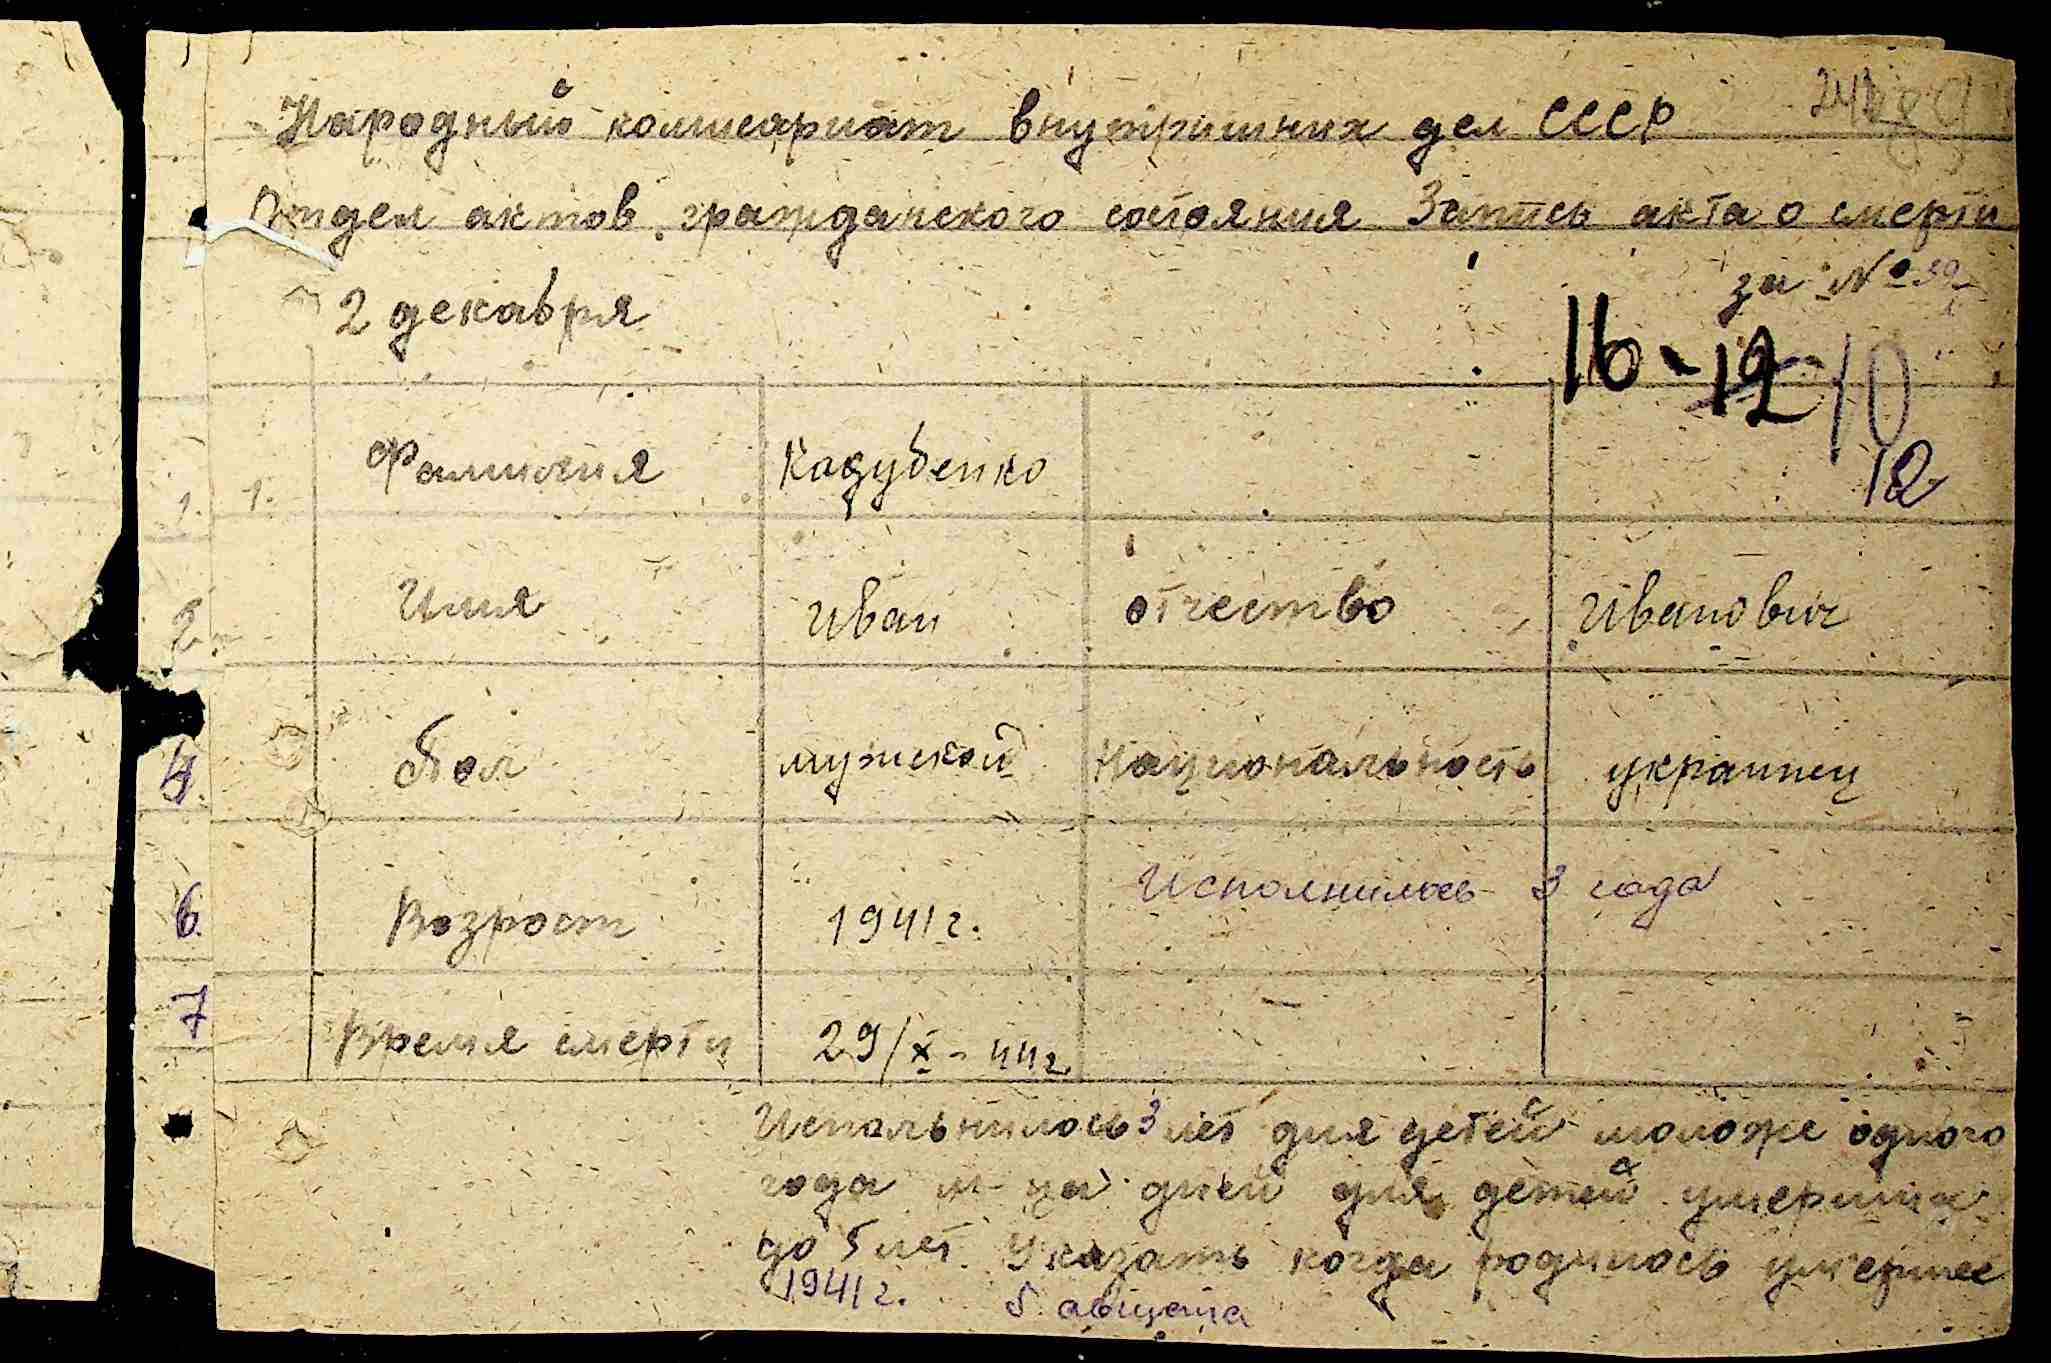 Народный комисариат внутришних дел СССР
Отдел актов гражданского состояния Запись акта о смерти
за №
2 декабря
16-12 10
12
1. 1. Фамилия Кадубенко
2. Имя Иван отчество Иванович
4. Пол мужской Национальность украинец
6. Возрост 1941г. Исполнилось 3 года
7 Время смерти 29/X-44г.
Испольнилось 3 лет для детей моложе одного
года м-ца дней для детей умерших
до 5 лет. Указать когда родилось умершее
1941г. 5 августа